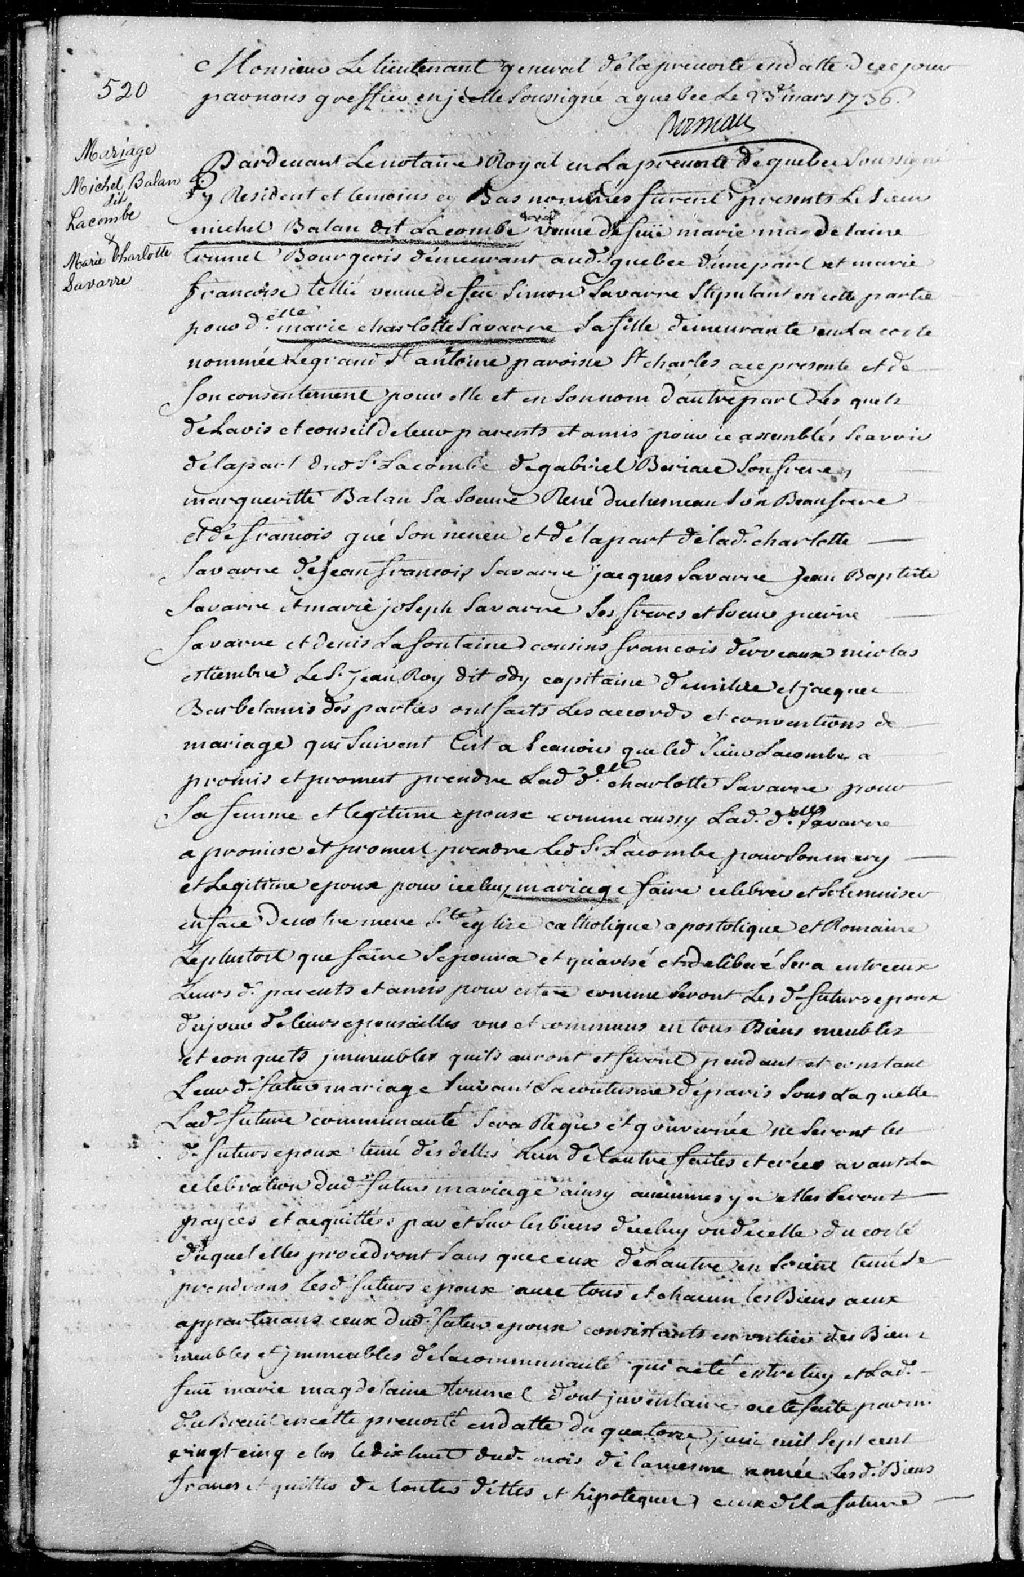 Monsieur Le lieutenant general de la prevoste en datte de ce jour
par nous greffier en jcelle Soussigné a quebec Le 23e mars 1736.
520
Mariage
Michel Balan
dit
Lacombe
&
Marie Charlotte
Savarre
Pardevant Le notaire Royal en La prevosté de quebec Soussigné
y Resident et temoins cy Bas nommés furent presents Le Sieur
michel Balan dit Lacombe veuve de feüe marie magdelaine
trunel Bourgeois demeurant aud. quebec d'une part et marie
francoise tellié veuve de feu Simon Savarre Stipulant en cette partie
pour d.elle marie charlotte Savarre Sa fille demeurante en La coste
nommée Le grand St antoine paroisse St charles a ce presente et de
Son consentement pour elle et en Son nom d'autre part Les quels
de Lavis et conseil de leur parents et amis pour ce assemblés Scavoir
de la part dud. Sr. Lacombe de gabriel Beriace Son frere
margueritte Balan Sa Soeure René duchesneau Son Beaufrere
et de francois qué Son neveu et de la part de lad. charlotte
Savarre de Jean francois Savarre jacques Savarre Jean Baptiste
Savarre et marie joseph Savarre Ses freres et Soeur pierre
Savarre et denis Lafontaine cousins francois derveaux nicolas
estiembre Le Sr. Jean Roy dit ody capitaine de milice et jacques
Barbelamis des parties ont faits Les accords et conventions de
mariage qui Suivent C'est a Scavoir que led. Sieur Lacombe a
promis et promet prendre Lad. d.elle charlotte Savarre pour
Sa femme et legitime epouse comme aussy Lad. d.elle Savarre
a promise et promet prendre Led. Sr. Lacombe pour Son mary
et Legitime epoux pour iceluy mariage faire celebrer et Solemniser
en face de notre mere Ste eglise catholique apostolique et Romaine
Le plustost que faire Se poura et qu'avisé et deliberé Sera entre eux
Leurs d. parents et amis pour estre comme Seront Les d. futurs epoux
du jour de leurs epousailles uns et communs en tous Biens meubles
et conquets jmmeubles quils auront et feront pendant et constant
Leur d. futur mariage Suivant La coutume de paris Sous Laquelle
Lad. future communauté Sera Regie et gouvernée ne Seront les
d. futurs epoux tenu des dettes Lun de Lautre faites et crées avant La
celebration dud. futur mariage ainsy aucunnes y a elles Seront
payées et acquittées par et Sur les biens de celuy ou de celle du costé
duquel elles procedront Sans que ceux de Lautre en Soient tenu Se
prendrons Lesd. futurs epoux avec tous et chacun les Biens a eux
appartenans ceux dud. futur epoux consistants en moitier des Biens
meubles et jmmeubles de la communauté qui a eté entre luy et Lad.
feüe marie magdelaine trunel dont jnventaire a eté faite par mr
duBreuil en cette prevosté en datte du quatorze juin mil Sept cent
vingt cinq et clos le dix huit dud. mois de la mesme année Lesd. Biens
francs et quittes de toutes dettes et hipoteques ceux de la future